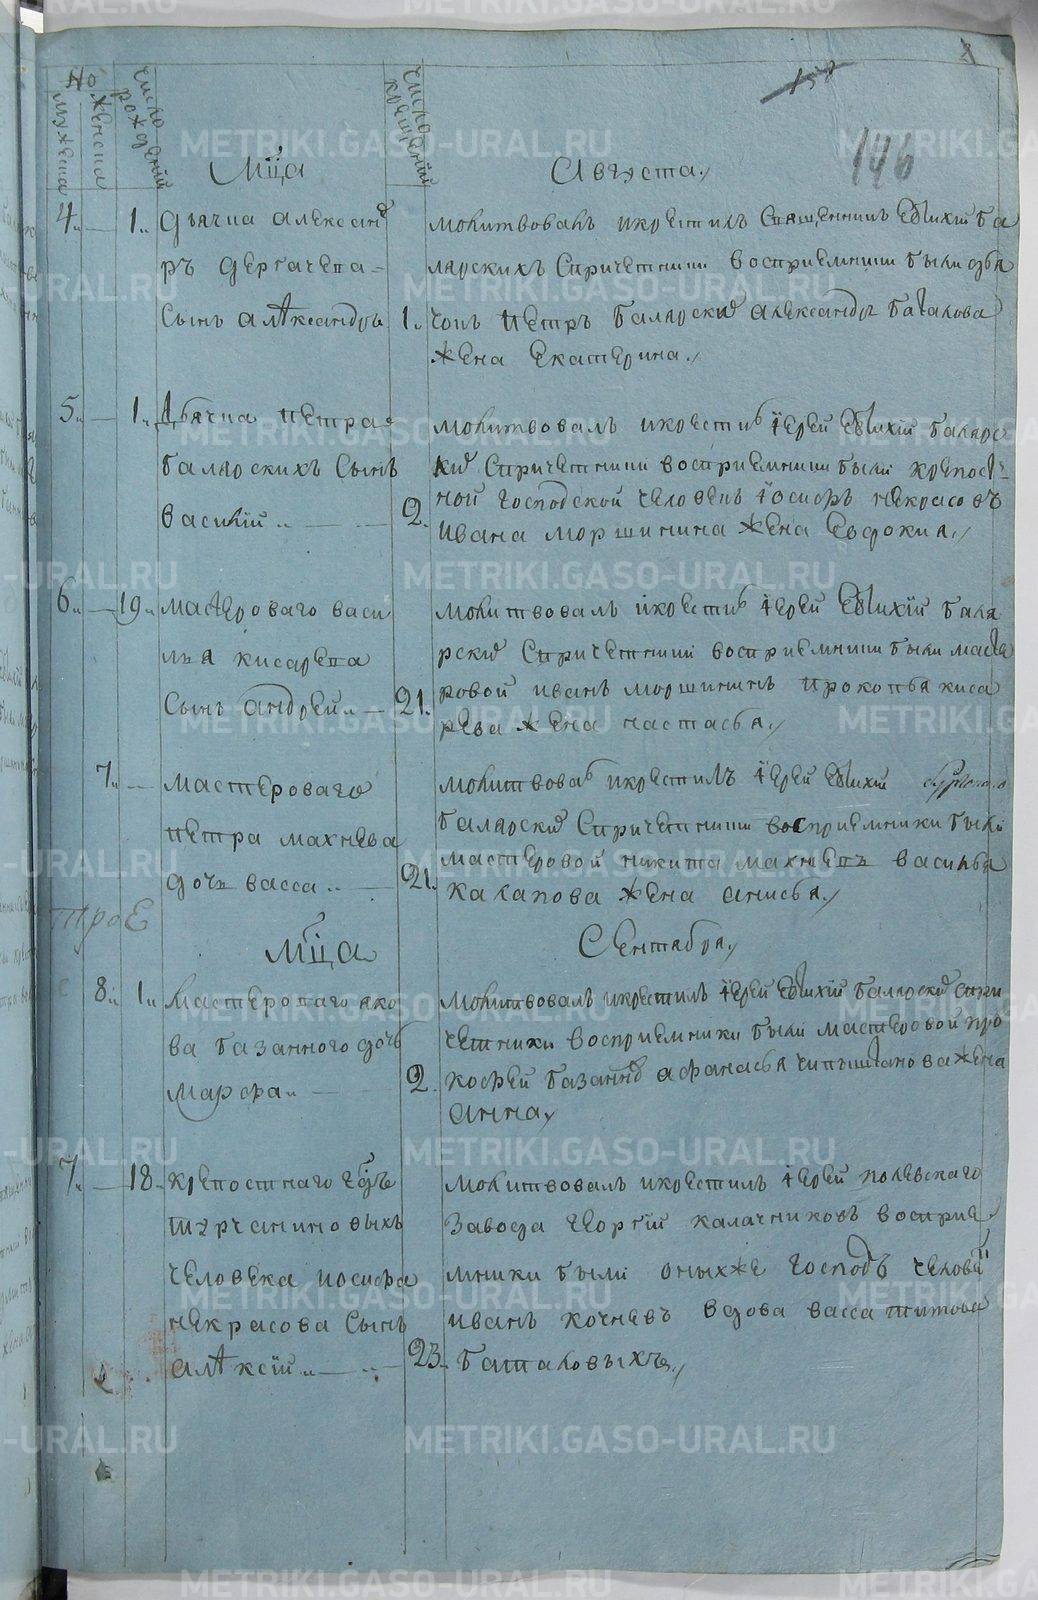 146
No
мужеска
женска
число рожденій
число крещеній
Мца Августа
4 1 дьячка алексан
ръ дергачева
Сынъ алѣксандръ
1. молитвовалъ икрестилъ Священникъ Евтихій Ба
лярскихъ Спричетники восприемники были дья
чокъ петръ балярскій александръ баталова
жена екатерина
5 1 Дьячка петра
балярскихъ Сынъ
василій
2. молитвовалъ икрестилъ іерей Евтихій балярс
кій Спричетники восприемники были крепост
ной господской человекъ іосифъ некрасовъ
ивана моршинина жена евдокия
6 19 мастероваго васи
лья кисарева
Сынъ андрей
21. молитвовалъ икрестилъ іерей Евтихій баля
рскій Спричетники восприемники были масте
ровой иванъ моршининъ прокопья киса
рева жена настасья
7 мастероваго
петра махнева
дочь васса
21. молитвовалъ икрестилъ іерей Евтихій
балярскій Спричетники восприемники были
мастеровой никита махневъ василья
калапова жена анисья
трое
Мца Сентября
8 1 мастероваго яко
ва базанного дочь
марфа
2. молитвовалъ икрестилъ іерей Евтихій балярскій спри
четники восприемники были мастеровой про
кофей базанновъ афанасья чипыштанова жена
анна
7 18 крепостнаго гдъ
турчаниновыхъ
человека иосифа
некрасова Сынъ
алѣксій
23. молитвовалъ икрестилъ іерей полевскаго
завода георгій калачниковъ восприе
мники были оныхже господъ человѣ
иванъ кочневъ вдова васса титова
баталовыхъ
METRIKI.GASO-URAL.RU